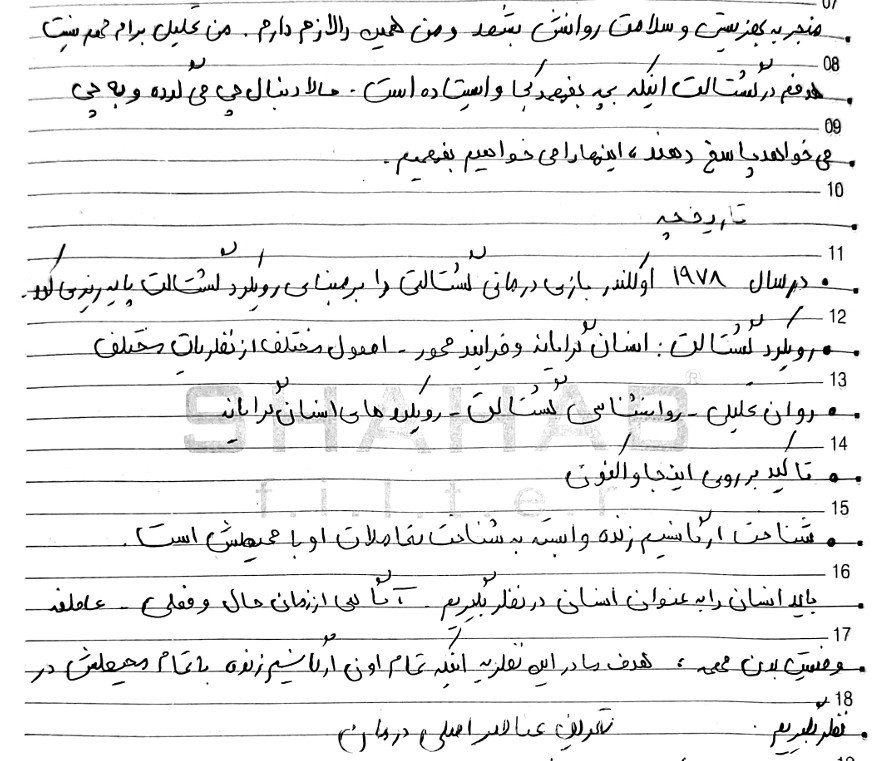 07
منجر به بهزیستی و سلامت روانش بشود و من همین را لازم دارم. من تحلیل برام مهم نیست
08
هدفم در گشتالت اینکه بچه بفهمد کجا وایستاده است. حالا دنبال چی می گرده و به چی
09
می خواهد پاسخ دهند، اینها را می خواهیم بفهمیم.
10
تاریخچه
11
در سال ۱۹۷۸ اوکلندر بازی درمانی گشتالتی را بر مبنای رویکرد گشتالت پایه ریزی کرد.
12
رویکرد گشتالت: انسان گرایانه و فرایند محور - اصول مختلف از نظریات مختلف
13
روان تحلیلی - روانشناسی گشتالت - رویکردهای انسان گرایانه
SHAHAB®
14
تاکید بر روی اینجا و اکنون
filter
15
شناخت ارگانسیم زنده وابسته به شناخت تعاملات او با محیطش است.
16
باید انسان را به عنوان انسان در نظر بگیریم. آگاهی از زمان حال و فعلی - عاطفه
17
وضعیت بدن مهمه، هدف ما در این نظریه اینکه تمام اون ارگانسیم زنده با تمام محیطش در
18
نظر بگیریم. تعریف عناصر اصلی درمان